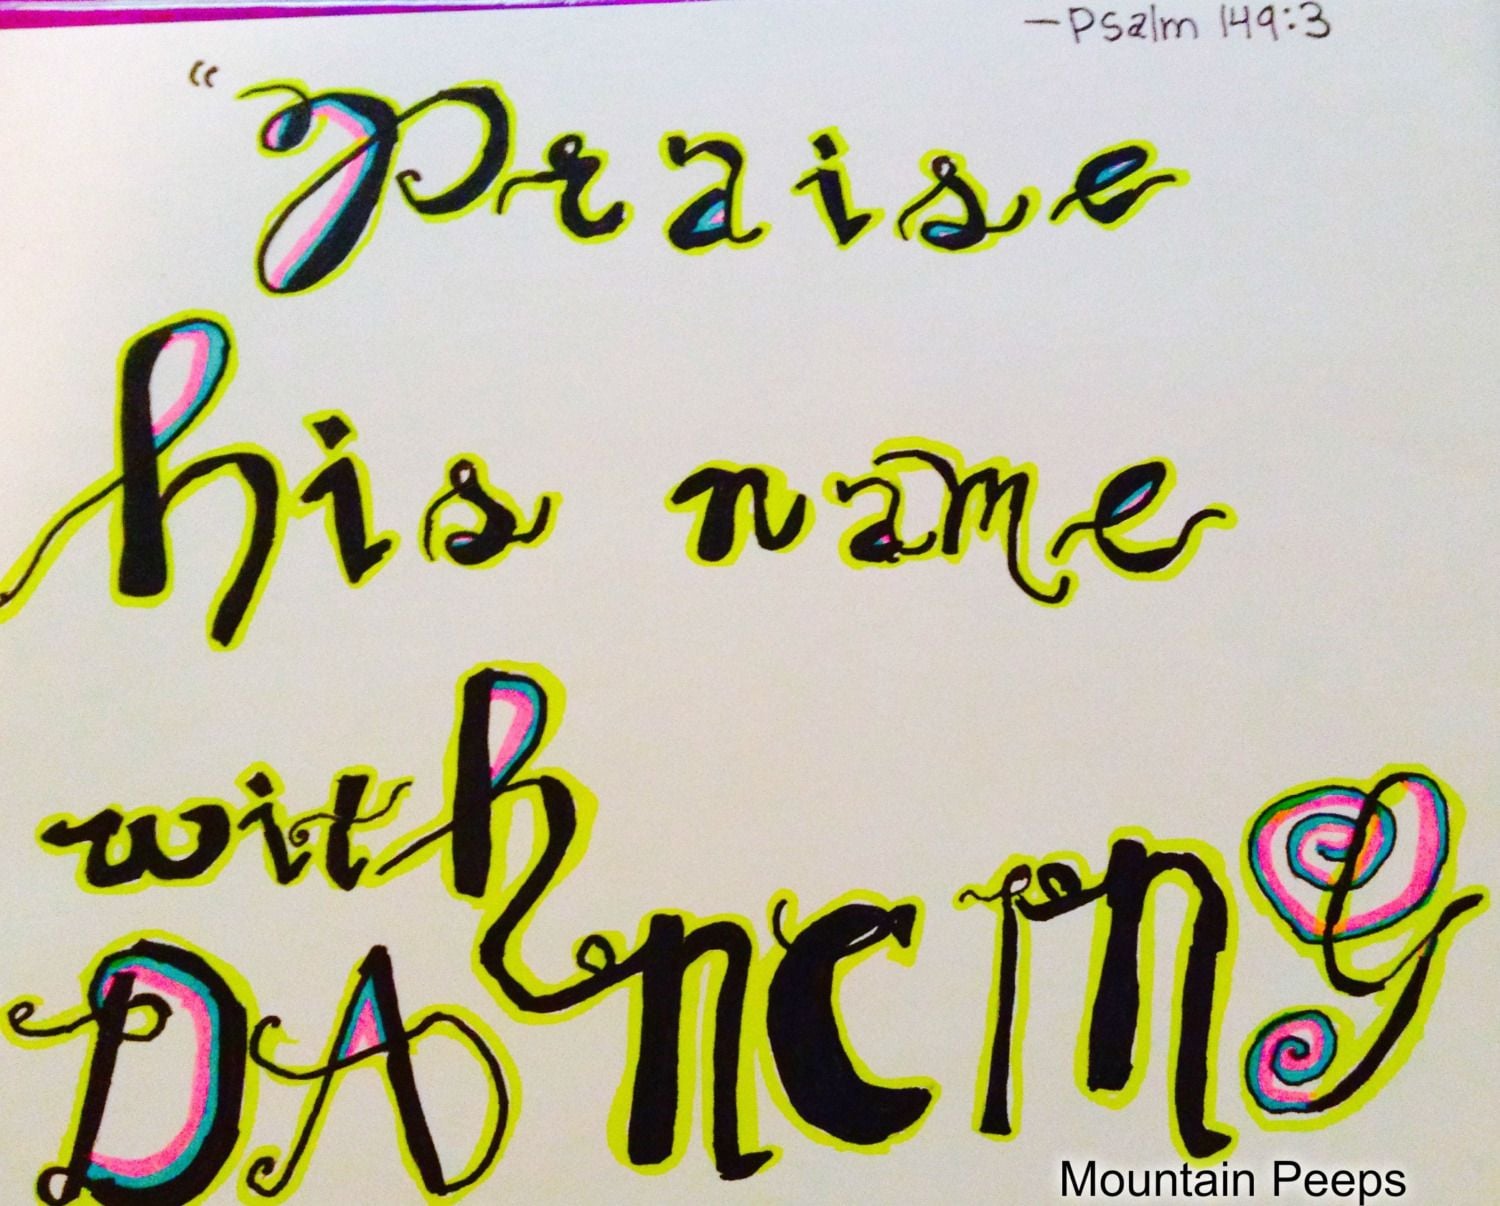 —Psalm 149:3
“Praise
his name
with
DAncing
Mountain Peeps